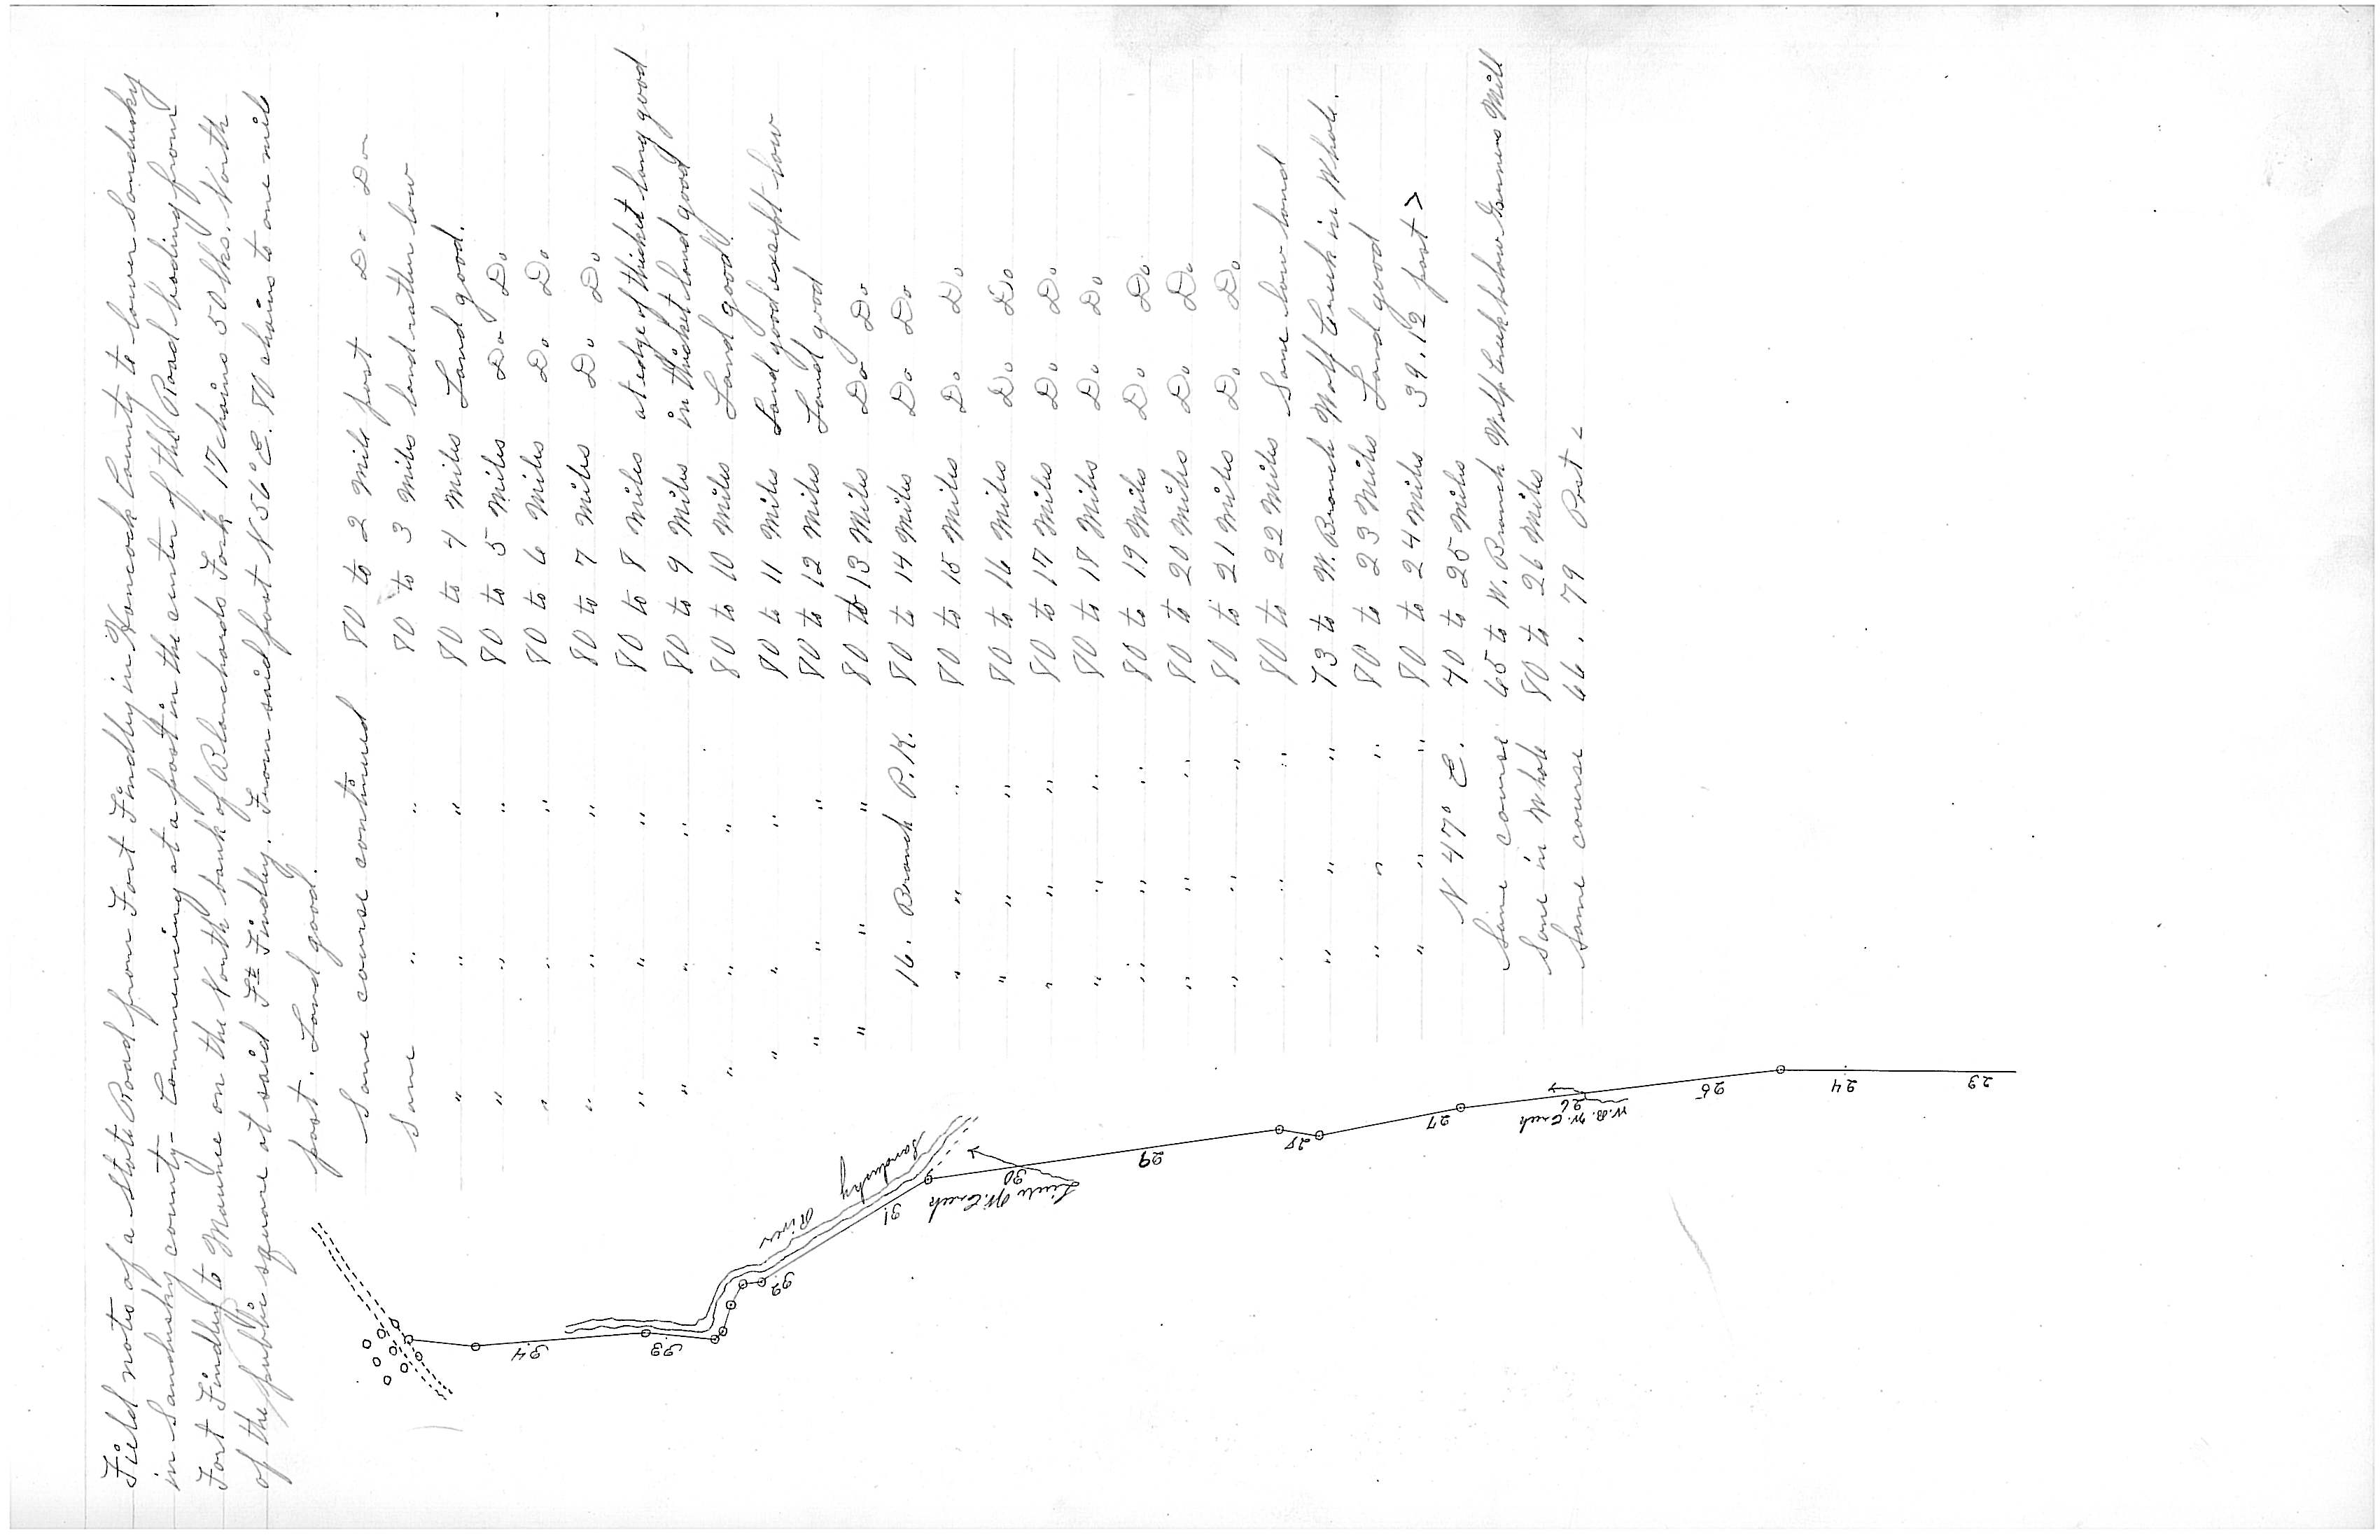 Field notes of a State Road from Fort Findley in Hancock County to lower Sandusky
in Sandusky county - Commencing at a post in the center of the Road leading from
Fort Findley to Maumee on the North bank of Blanchards Fork 17 chains 50 lks. North
of the public square at said Ft Findley. From said post N 56° E. 80 chains to one mile
post. Land good.
Same course continued 80 to 2 Mile post Do Do
Same " " 80 to 3 Miles land rather low
" " " 80 to 4 Miles Land good.
" " " 80 to 5 Miles Do Do
" " " 80 to 6 Miles Do Do
" " " 80 to 7 Miles Do Do
" " " 80 to 8 Miles at edge of thicket lang good
" " " 80 to 9 Miles in thicket land good
" " " 80 to 10 Miles Land good
" " " 80 to 11 Miles Land good except low
" " " 80 to 12 Miles Land good
" " " 80 to 13 Miles Do Do
16. Branch P.R. 80 to 14 Miles Do Do
" " " 80 to 15 Miles Do Do
" " " 80 to 16 Miles Do Do
" " " 80 to 17 Miles Do Do
" " " 80 to 18 Miles Do Do
" " " 80 to 19 Miles Do Do
" " " 80 to 20 Miles Do Do
" " " 80 to 21 Miles Do Do
" " " 80 to 22 Miles Same low land
" " " 73 to W. Branch Wolf Creek in Whole.
" " " 80 to 23 Miles Land good
" " " 80 to 24 Miles 39.12 post >
N 47° E. 40 to 25 Miles
Same course 65 to W. Branch Wolf Creek below Mill
Same in Whole 80 to 26 Miles
Same course 66. 79 Post <
23
24
25
W.B. W. Creek
26
27
28
29
Little W. Creek
30
31
Sandusky
River
32
33
34